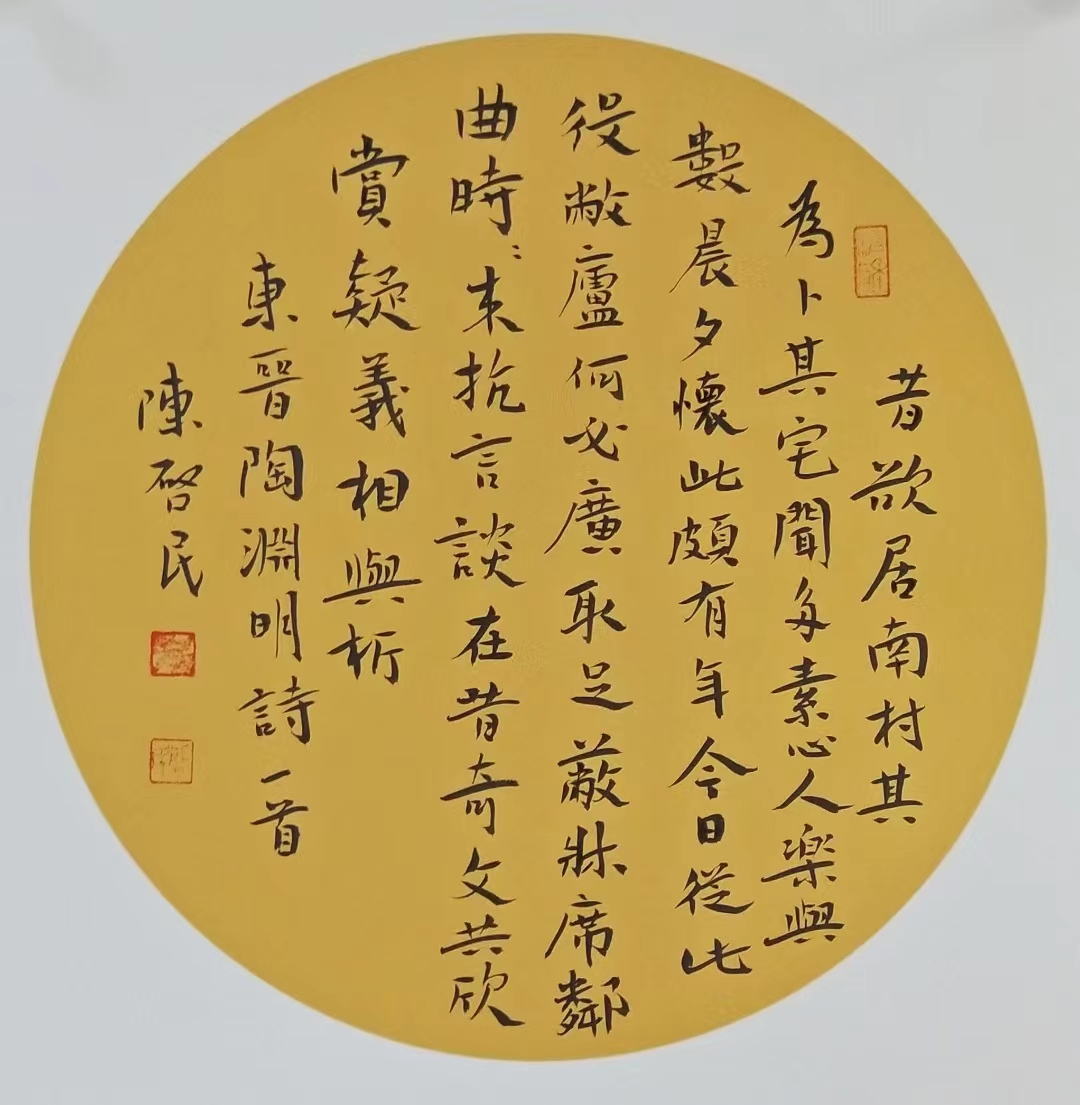 昔欲居南村其
為卜其宅聞多素心人楽與
數晨夕懷此頗有年今日從此
役敝廬何必廣取足蔽牀席鄰
曲時〻来抗言談在昔奇文共欣
賞疑義相與析
東晉陶淵明詩一首
陳啓民